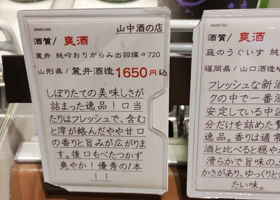 山中酒の店
酒質/爽酒
麓井 純吟おりがらみ出羽燦々720
山形県/麓井酒造 1650円込
しぼりたての美味しさが
詰まった逸品!口当
たりはフレッシュで、含む
と滓が絡んだやや甘口
の香りと旨みが広がりま
す。後口もべたつかず
爽やか!優秀の1本
!!
酒質/爽酒
庭のうぐいす 純
福岡県/山口酒造
フレッシュな新酒
クの中で一番
安定している中込
分だけを詰めた贅
品。香りは通常
酒と比べると穏や
滑らかで旨味の
かさがあり、ゆっくりと
たい味。